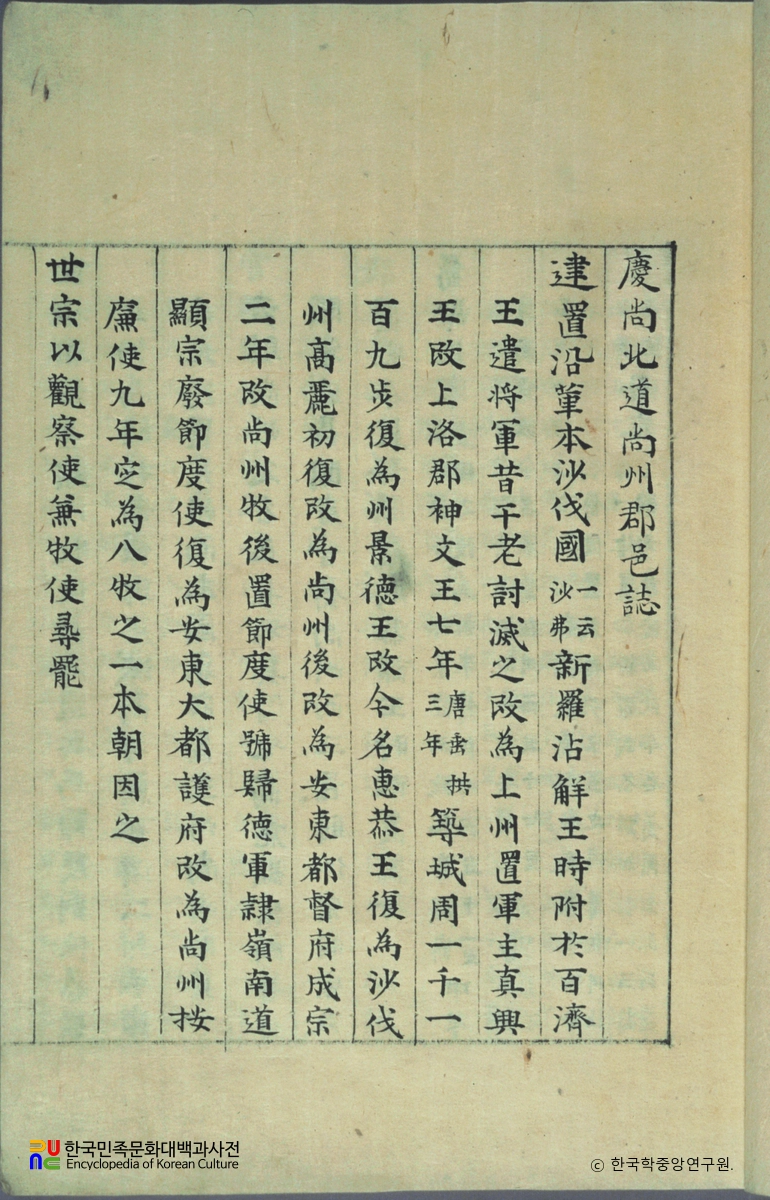 慶尚北道尚州郡邑誌
建置沿革本沙伐國一云沙弗新羅沾解王時附於百濟
王遣将軍昔于老討滅之改為上州置軍主真興
王改上洛郡神文王七年唐垂拱三年築城周一千一
百九步復為州景德王改今名惠恭王復為沙伐
州髙麗初復改為尚州後改為安東都督府成宗
二年改尚州牧後置節度使號歸德軍隷嶺南道
顯宗廢節度使復為安東大都護府改為尚州按
廉使九年定為八牧之一本朝因之
世宗以觀察使兼牧使尋罷
한국민족문화대백과사전
Encyclopedia of Korean Culture
© 한국학중앙연구원.